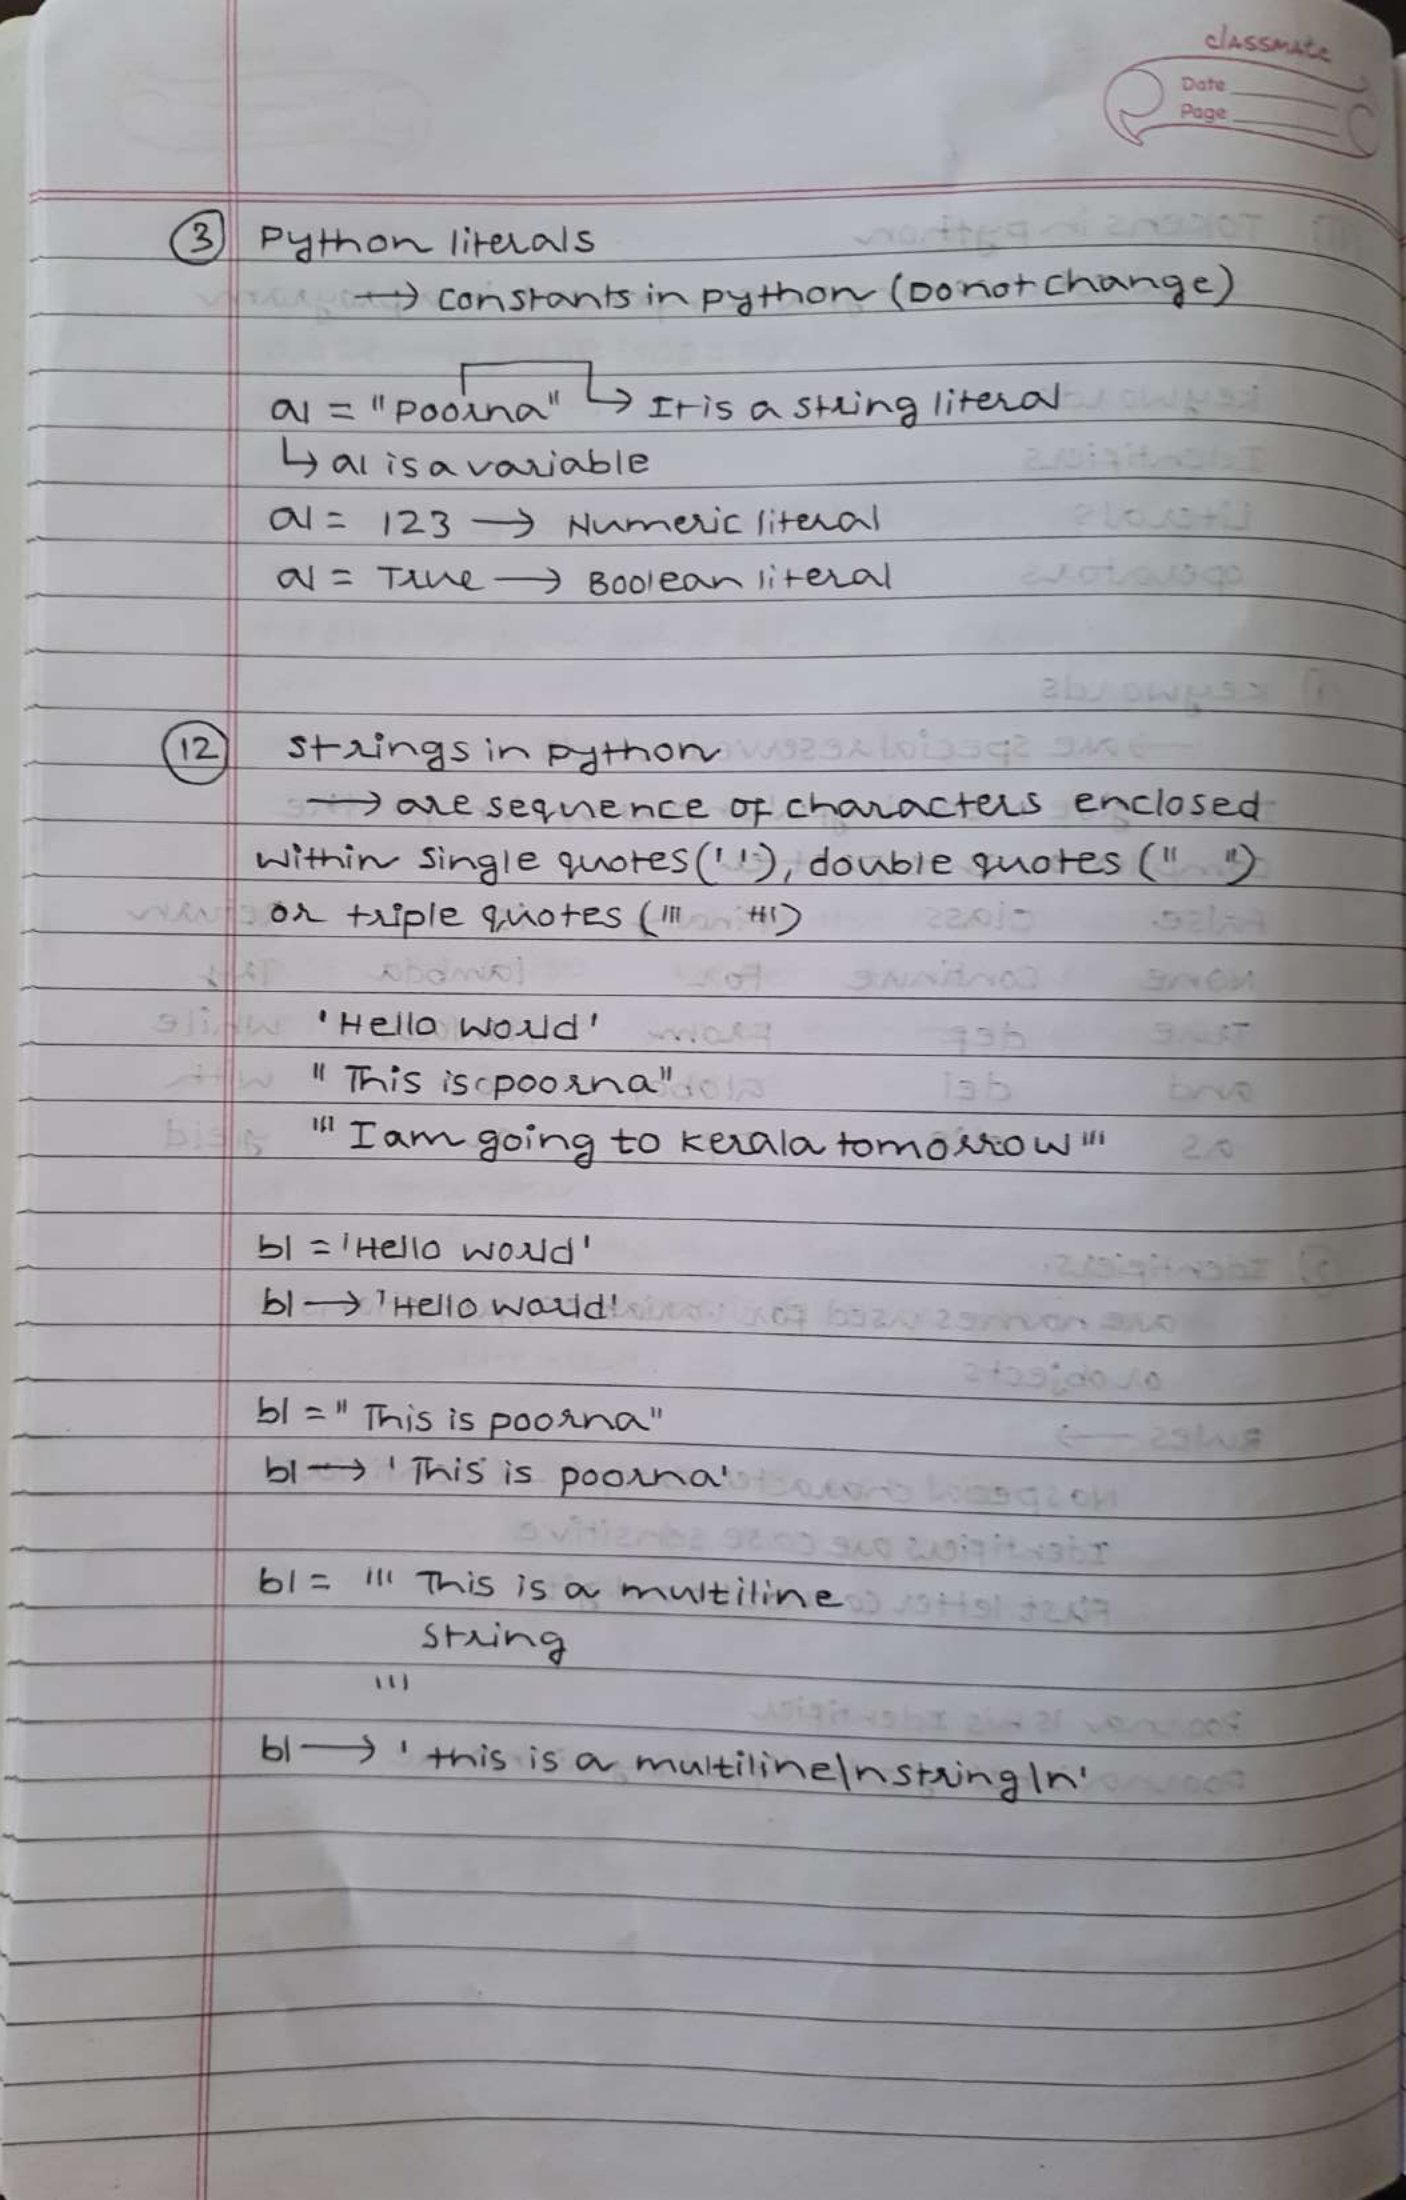 classmate
Date
Page
3 Python literals
→ constants in python (Do not change)
a1 = "Poorna" ↳ It is a string literal
↳ a1 is a variable
a1 = 123 → Numeric literal
a1 = True → Boolean literal
12 strings in python
→ are sequence of characters enclosed
within single quotes (' '), double quotes (" ")
or triple quotes (''' ''')
'Hello world'
" This is poorna"
''' I am going to kerala tomorrow '''
b1 = 'Hello world'
b1 → 'Hello world'
b1 = " This is poorna"
b1 → ' This is poorna'
b1 = ''' This is a multiline
string
'''
b1 → ' this is a multiline\nstring\n'